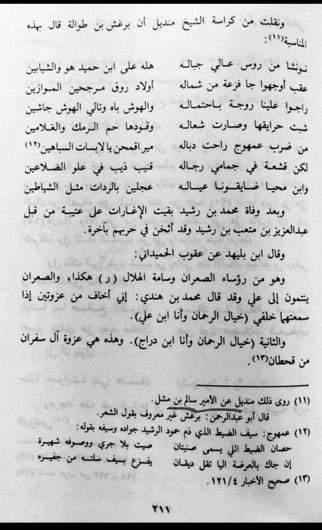 ونقلت من كراسة الشيخ منديل أن برغش بن طوالة قال بهذه
المناسبة(١١):
نوننا من روس عالي جباله هله على ابن حميد هو والشيابين
عقب أوجهوا جا فزعة من شماله أولاد روق مرجحين الموازين
راجوا علينا روجة باحتماله والهوش باه وتالي الهوش جاشين
ثبت حرايقها وصارت شعاله وقودها حم الرمك والغلامين
من ضرب عمهوج راحت دباله مير اقمحن يا لابسات السباهين(١٢)
لكن قشعة في جمامي رجاله قنيب ذيب في علو الضلاعين
وابن محيا ضايقونا عياله عجلين بالردات مثل الشياطين
وبعد وفاة محمد بن رشيد بقيت الإغارات على عتيبة من قبل
عبدالعزيز بن متعب بن رشيد وقد أثخن في حربهم بأخرة.
وقال ابن بليهد عن عقوب الحميداني:
وهو من رؤساء الصعران وسامة الهلال (ر) هكذا، والصعران
ينتمون إلى علي وقد قال محمد بن هندي: إني أخاف من عزوتين إذا
سمعتها خلفي (خيال الرحمان وأنا ابن علي).
والثانية (خيال الرحمان وأنا ابن دراج). وهذه هي عزوة آل سفران
من قحطان(١٣).
(١١) روى ذلك منديل عن الأمير سالم بن مشل.
قال أبو عبدالرحمن: برغش غير معروف بقول الشعر.
(١٢) عمهوج: سيف الضيط الذي ذم حمود الرشيد جواده وسيفه بقوله:
حصان الضيط اللي يسمى صنيتان صيت بلا جري ووصوفه شهيرة
إن جاك بالعرضة اليا تقل ديقان يفزع بنيف سلته من جفيره
(١٣) صحيح الأخبار ١٢١/٤.
٢١١